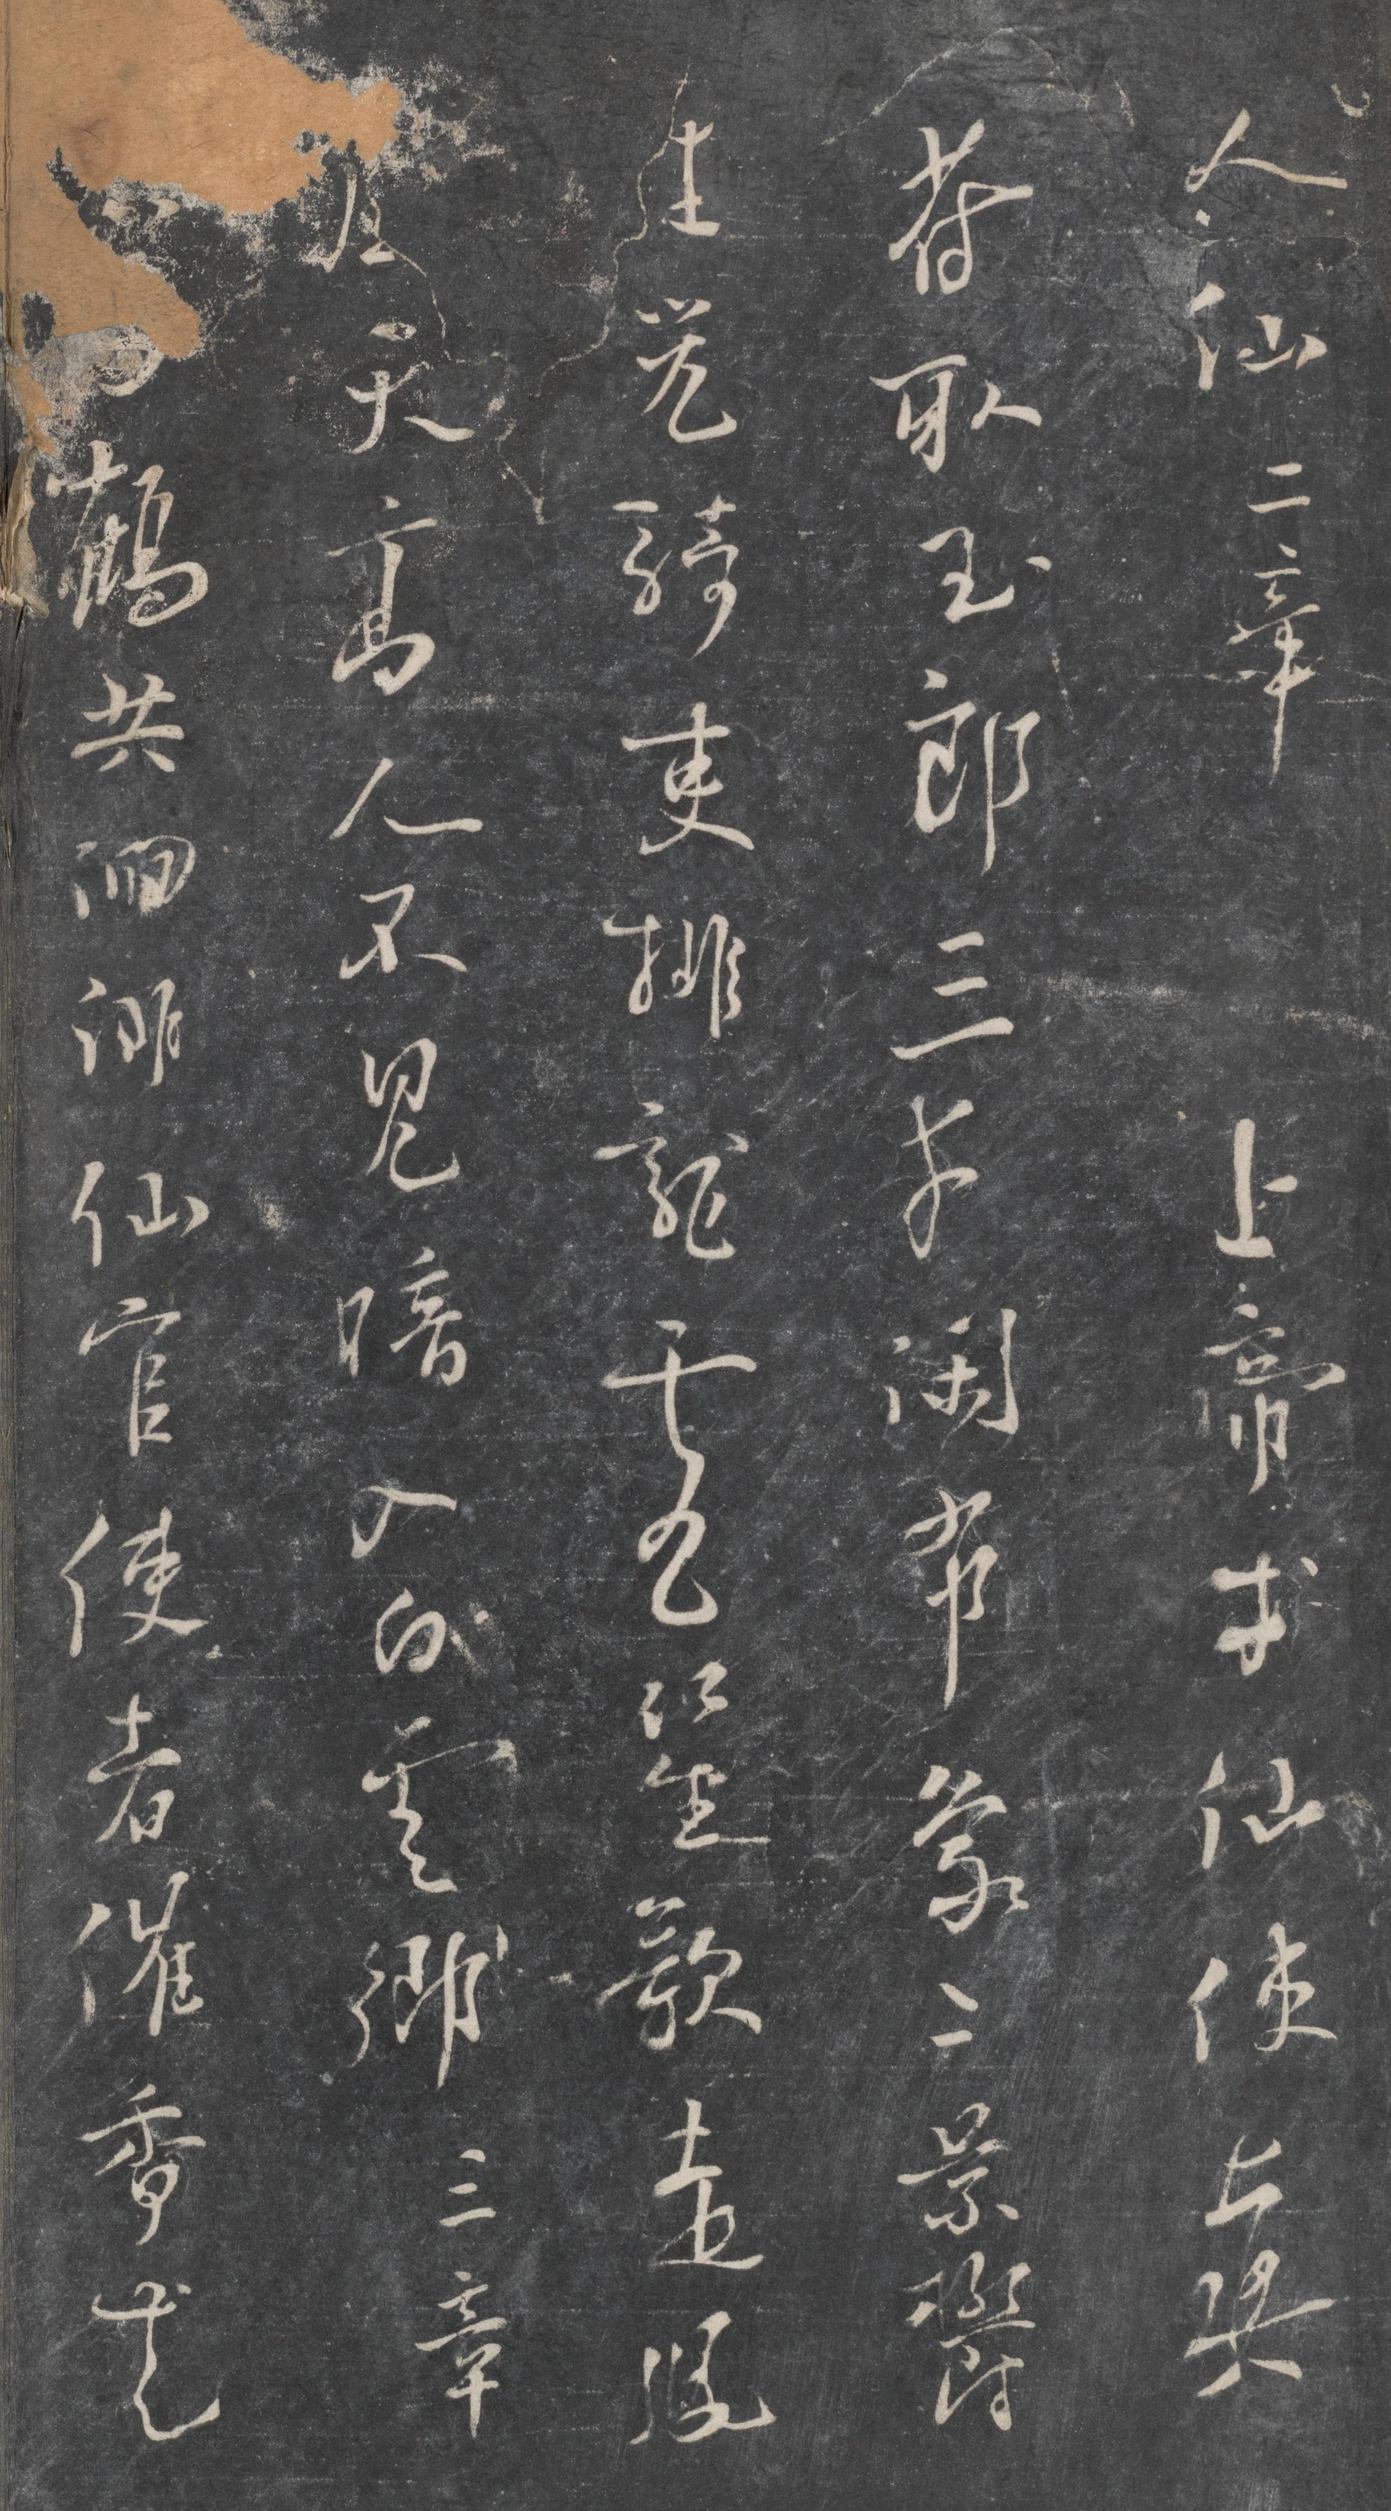 人仙 二章 上帝求仙使真
符取玉郎三才闲布象二景鬱
生光騎吏排龍虎笙歌走鳳
凰天高人不見暗入白雲鄉 三章
鶴共徊徘仙官使者催香花